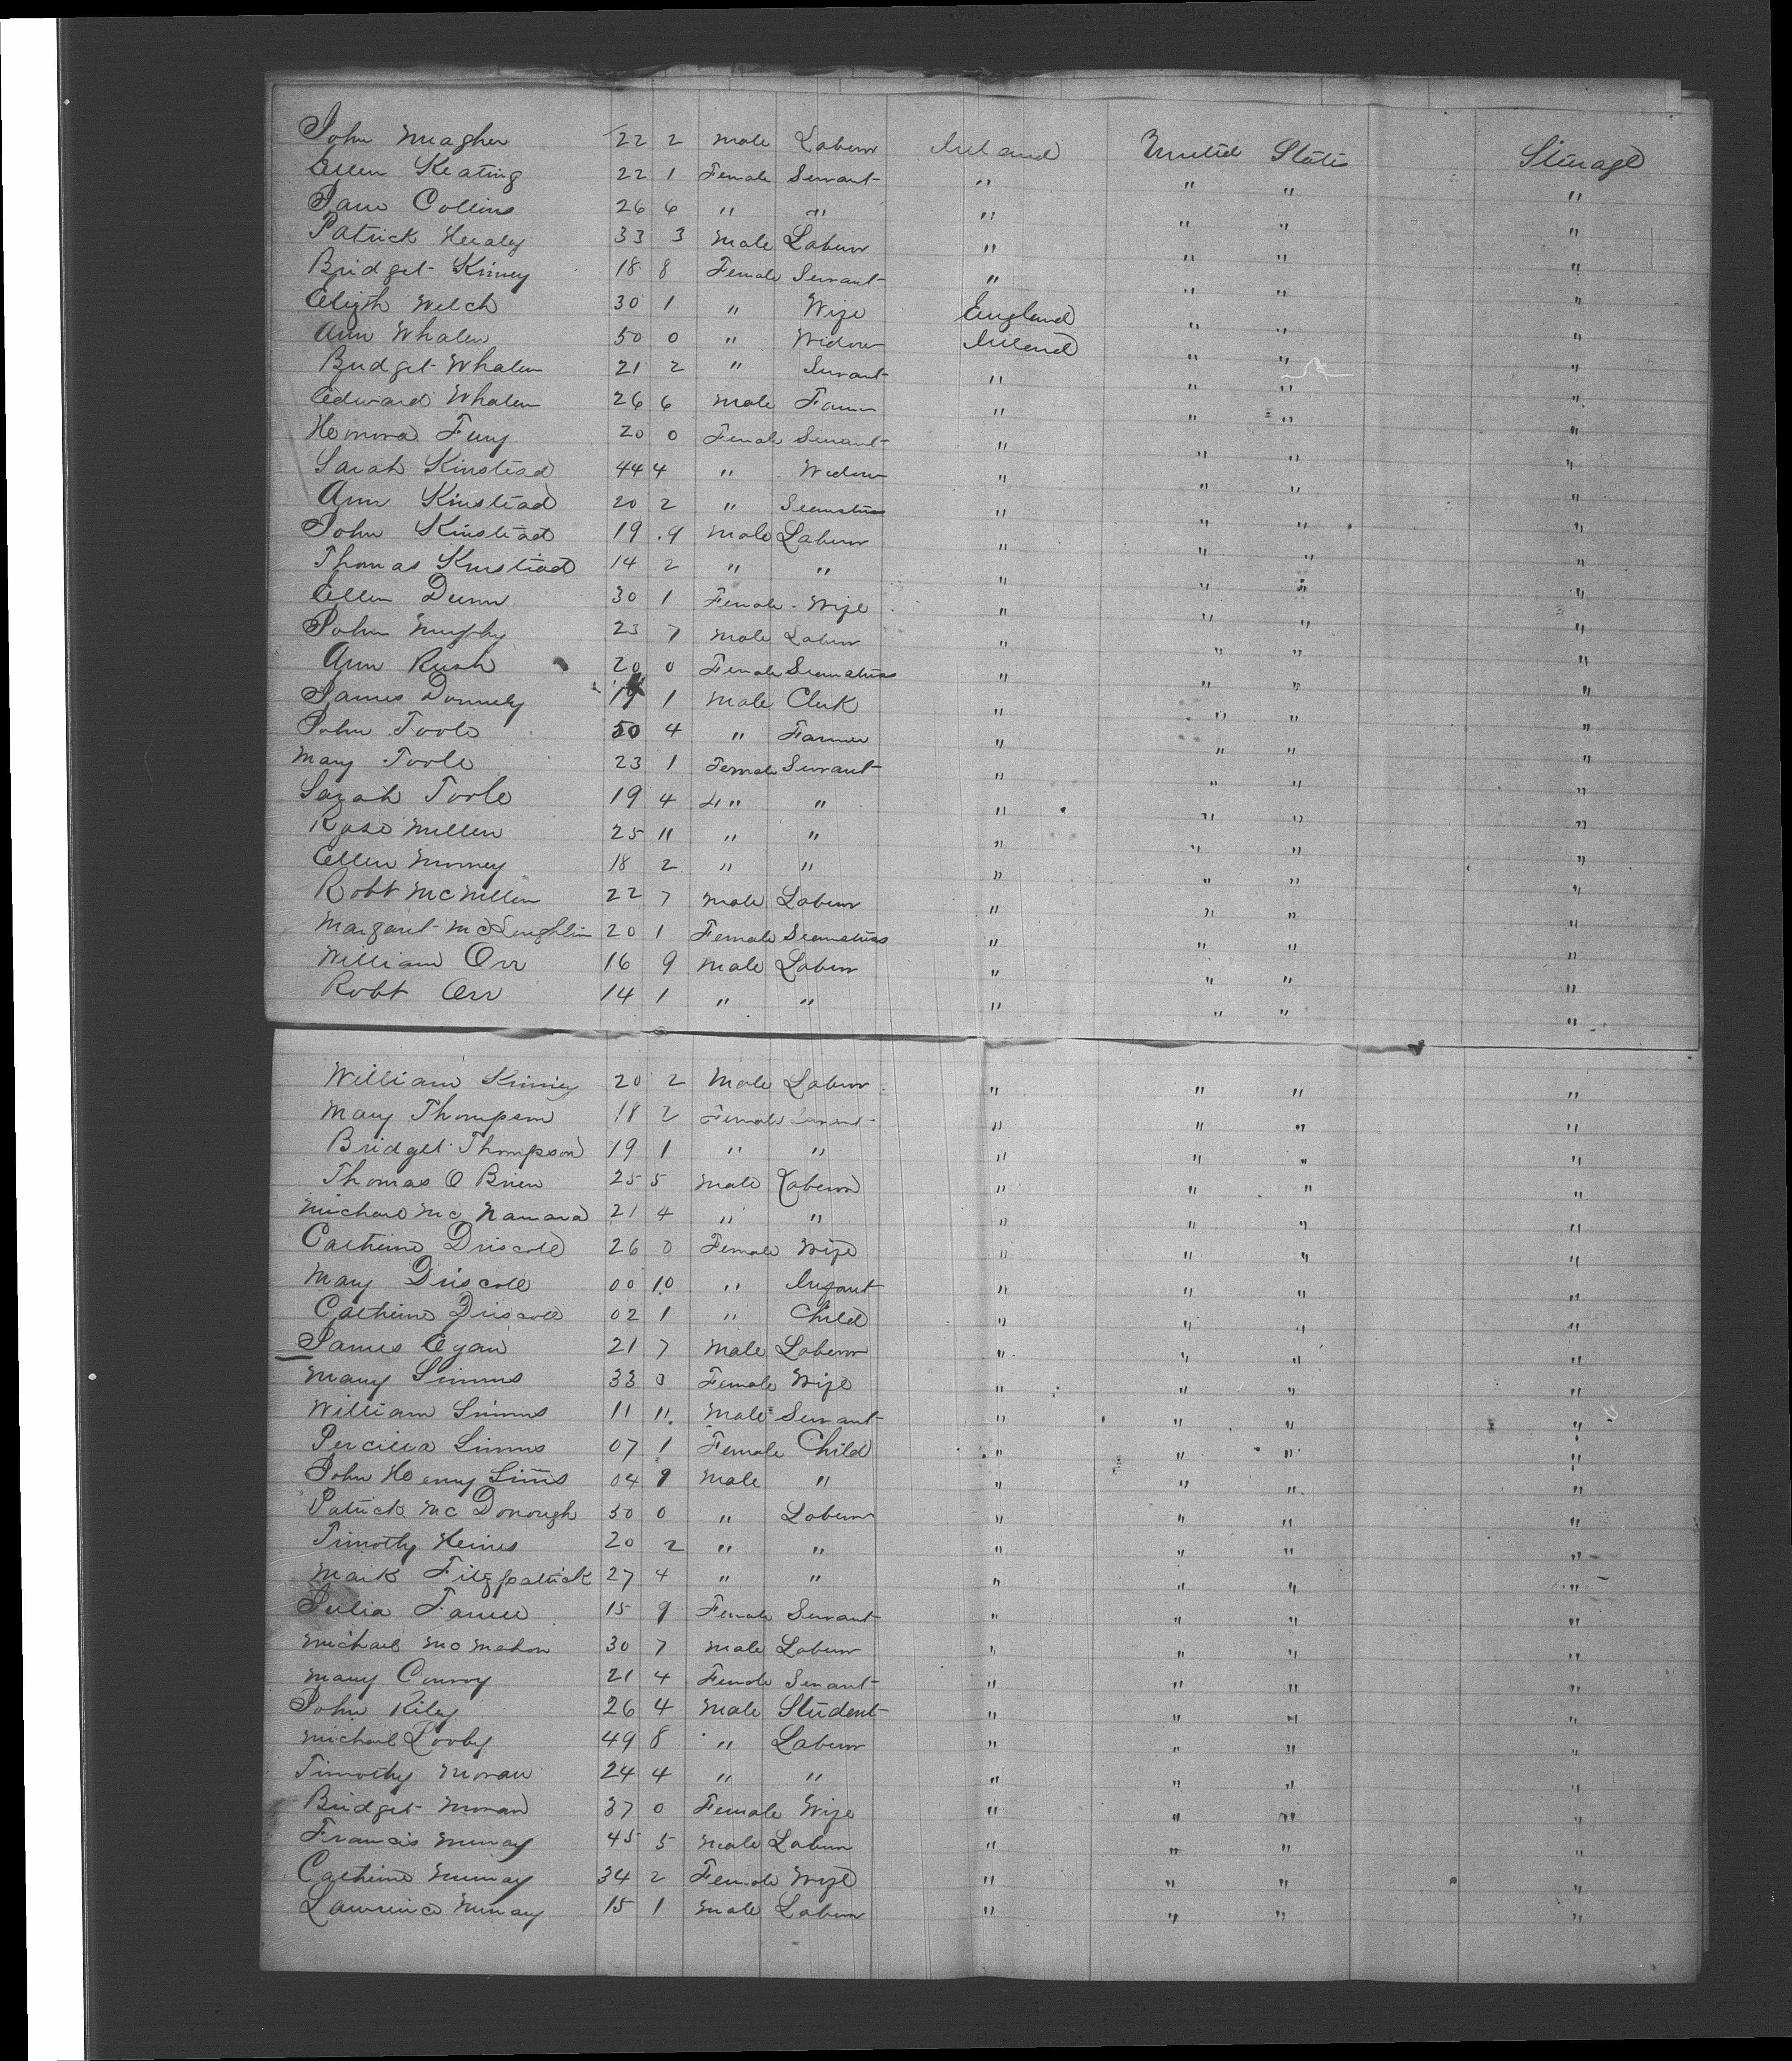 John Meagher 22 2 Male Laborer Ireland United States Steerage
Ellen Keating 22 1 Female Servant " " " "
Jane Collins 26 6 " " " " " "
Patrick Healey 33 3 Male Laborer " " " "
Bridget Kinney 18 8 Female Servant " " " "
Elizth Welch 30 1 " Wife England " " "
Ann Whalen 50 0 " Widow Ireland " " "
Bridget Whalen 21 2 " Servant " " " "
Edward Whalen 26 6 Male Farmer " " " "
Honora Fury 20 0 Female Servant " " " "
Sarah Kinstead 44 4 " Widow " " " "
Ann Kinstead 20 2 " Seamstress " " " "
John Kinstead 19 9 Male Laborer " " " "
Thomas Kinstead 14 2 " " " " " "
Ellen Dunn 30 1 Female Wife " " " "
John Murphy 23 7 Male Laborer " " " "
Ann Rush 20 0 Female Seamstress " " " "
James Donnely 19 1 Male Clerk " " " "
John Toole 50 4 " Farmer " " " "
Mary Toole 23 1 Female Servant " " " "
Sarah Toole 19 4 " " " " " "
Rose Mullen 25 11 " " " " " "
Ellen 18 2 " " " " " "
Robt McMullen 22 7 Male Laborer " " " "
Margaret McLoughlin 20 1 Female Seamstress " " " "
William Orr 16 9 Male Laborer " " " "
Robt Orr 14 1 " " " " " "
William Kinney 20 2 Male Laborer " " " "
Mary Thompson 18 2 Female Servant " " " "
Bridget Thompson 19 1 " " " " " "
Thomas O Brien 25 5 Male Laborer " " " "
Michael Mc Namara 21 4 " " " " " "
Catherine Driscoll 26 0 Female Wife " " " "
Mary Driscoll 00 10 " Infant " " " "
Catherine Driscoll 02 1 " Child " " " "
James Egan 21 7 Male Laborer " " " "
Mary Simms 33 0 Female Wife " " " "
William Simms 11 11 Male Servant " " " "
Percilla Simms 07 1 Female Child " " " "
John Henry Sims 04 9 Male " " " " "
Patrick Mc Donough 30 0 " Laborer " " " "
Timothy Heines 20 2 " " " " " "
Mark Fitzpatrick 27 4 " " " " " "
Julia 15 9 Female Servant " " " "
Michael Mc Mahon 30 7 Male Laborer " " " "
Mary Conroy 21 4 Female Servant " " " "
John Riley 26 4 Male Student " " " "
Michael Looby 49 8 " Laborer " " " "
Timothy Moran 24 4 " " " " " "
Bridget Moran 37 0 Female Wife " " " "
Francis Murray 45 5 Male Laborer " " " "
Catherine Murray 34 2 Female Wife " " " "
Lawrence Murray 15 1 Male Laborer " " " "